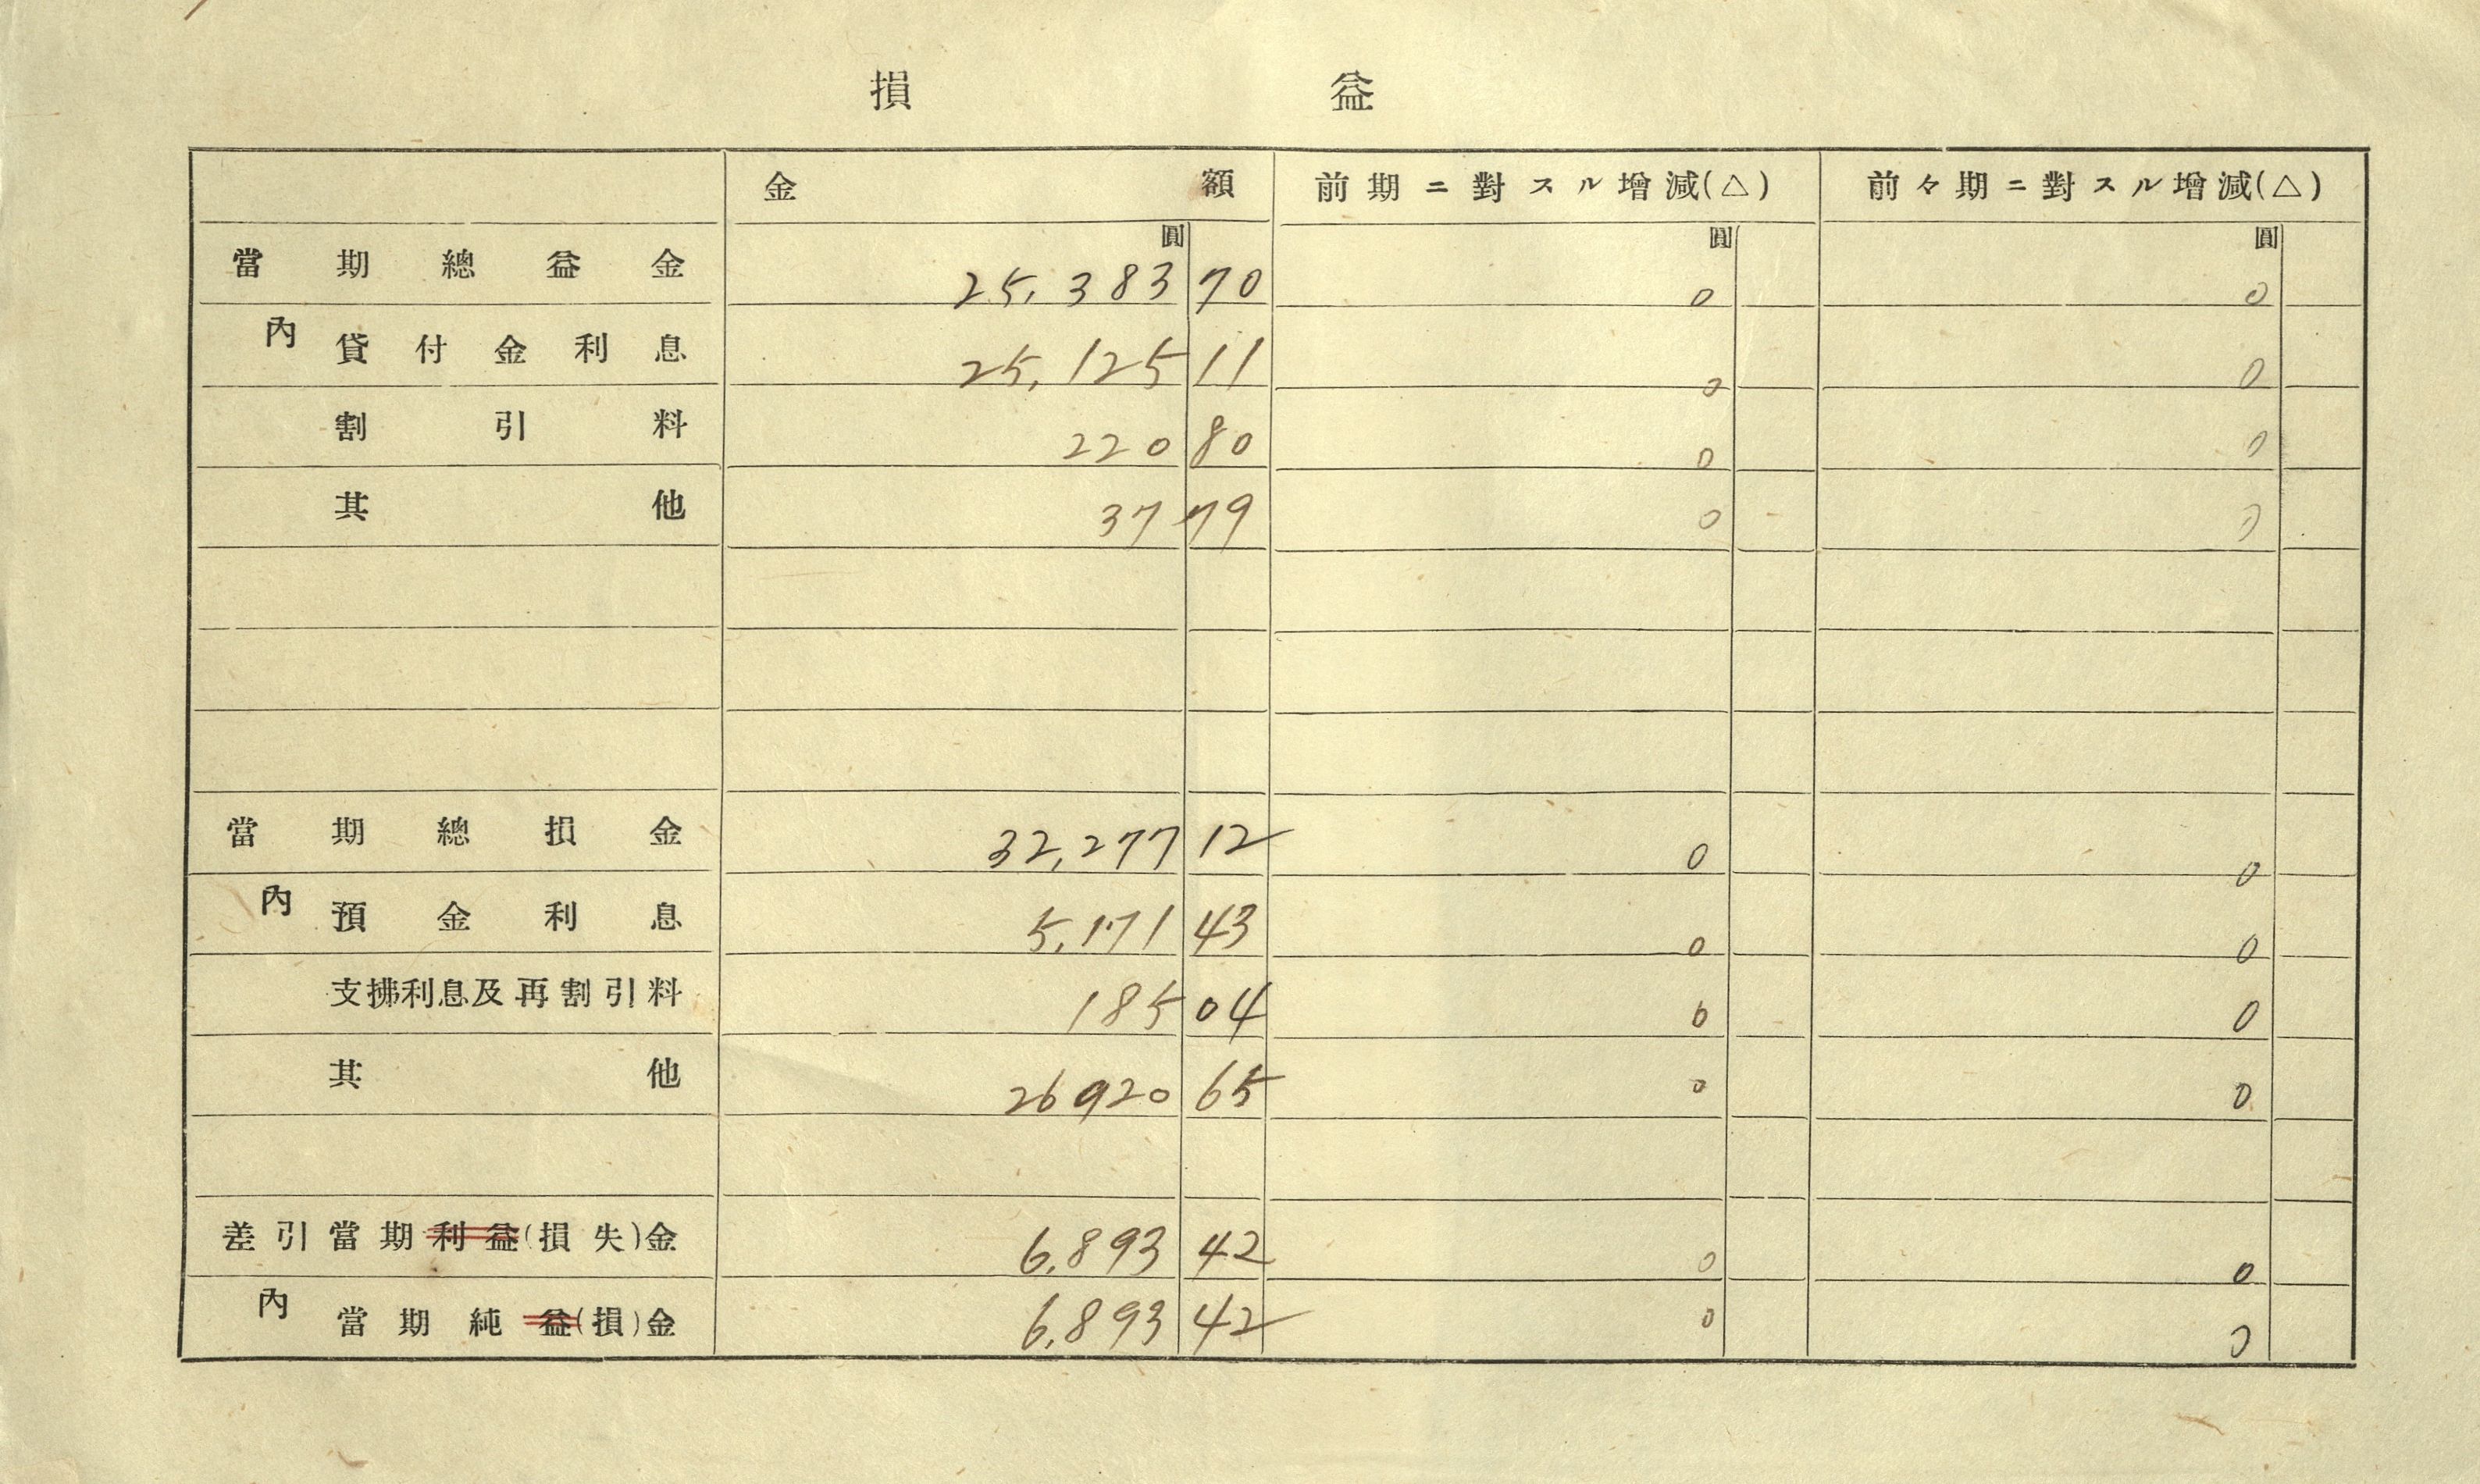 損益
金額 前期ニ對スル增減(△) 前々期ニ對スル增減(△)
圓 圓 圓
當期總益金 25,383 70 0 0
內 貸付金利息 25,125 11 0 0
割引料 220 80 0 0
其他 37 79 0 0
當期總損金 32,277 12 0 0
內 預金利息 5,171 43 0 0
支拂利息及再割引料 185 04 0 0
其他 26920 65 0 0
差引當期利益(損失)金 6,893 42 0 0
內 當期純益(損)金 6,893 42 0 0